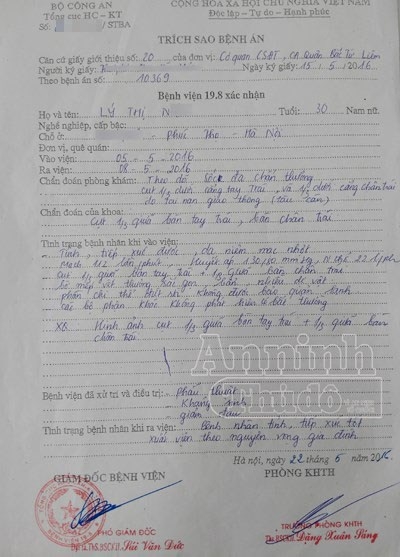 BỘ CÔNG AN
Tổng cục HC - KT
Số: /STBA
CỘNG HÒA XÃ HỘI CHỦ NGHĨA VIỆT NAM
Độc lập - Tự do - Hạnh phúc
TRÍCH SAO BỆNH ÁN
Căn cứ giấy giới thiệu số: 20 của đơn vị: Cơ quan CSĐT, CA Quận Bắc Từ Liêm
Người ký giấy: Ngày ký giấy: 15/5/2016
Theo bệnh án số: 10369
Bệnh viện 19.8 xác nhận
Họ và tên: LÝ THỊ N Tuổi: 30 Nam nữ.
Nghề nghiệp, cấp bậc:
Chỗ ở: Phúc Thọ - Hà Nội
Đơn vị, quê quán:
Vào viện: 05 - 5 - 2016
Ra viện: 08 - 5 - 2016
Chẩn đoán phòng khám: Theo dõi sốc đa chấn thương
cụt 1/3 dưới cẳng tay trái, và 1/3 dưới cẳng chân trái
do tai nạn giao thông (tàu cán)
Chẩn đoán của khoa:
Cụt 1/3 giữa bàn tay trái, bàn chân trái
Tình trạng bệnh nhân khi vào viện:
- Tỉnh, tiếp xúc được, da niêm mạc nhợt
- Mạch 112 lần/phút, Huyết áp 130/80 mmHg, N thở 22 l/ph
- Cụt 1/3 giữa bàn tay trái + 1/3 giữa bàn chân trái
bờ mép vết thương sắc gọn, nhiều dị vật
phần chi thể đứt rời không được bảo quản lạnh
- Các bộ phận khác không phát hiện gì bất thường
XQ: Hình ảnh cụt 1/3 giữa bàn tay trái + 1/3 giữa bàn
chân trái.
Anninh
Thủ đô
Bệnh viện đã xử trí và điều trị: - Phẫu thuật
- Kháng sinh
- giảm đau
Tình trạng bệnh nhân khi ra viện: - Bệnh nhân tỉnh, tiếp xúc tốt
xuất viện theo nguyện vọng gia đình
Hà nội, ngày 22 tháng 6 năm 2016
GIÁM ĐỐC BỆNH VIỆN
PHÒNG KHTH
PHÓ GIÁM ĐỐC
Đại tá, ThS.BSCKII. Bùi Văn Đức
TRƯỞNG PHÒNG KHTH
Ths.BSCKII. Đặng Xuân Sáng